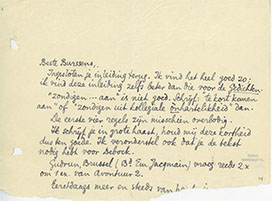 Beste Burssens,
Ingesloten je inleiding terug. Ik vind het heel goed zo;
ik vind deze inleiding zelfs beter dan die voor de Gedichten.
"zondigen ... aan" is niet goed. Schrijf: "te kort komen
aan" of "zondigen uit kollegiale onhartelikheid" dan.
De eerste vier regels zijn misschien overbodig.
Ik schrijf je in grote haast, houd mij deze kortheid
dus ten goede. Ik veronderstel ook dat je de tekst
nodig hebt voor Debock.
Gudrun, Brussel (Bd Em Jacqmain) vroeg reeds 2x
om 1 ex. van Avontuur 2.
Eerstdaags meer en steeds van